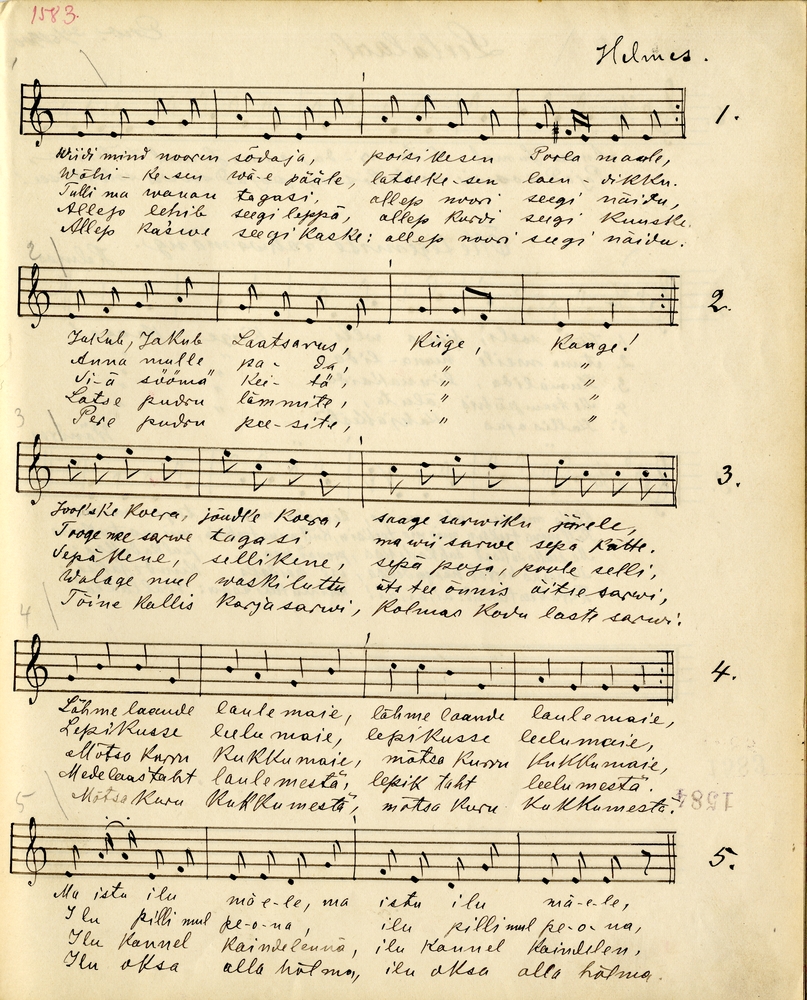 1583.
Helmes.
1.
Wiidi mind nooren sõdaja, poisikesen Poola maale,
Wähi-ke-sen wä-e pääle, latseke-sen laen-dikku.
Tulli ma wanan tagasi, allep noori seegi näidu,
Allep lehib seegi leppä, allep kurdi seegi kuuske.
Allep kaswe seegi kaske: allep noori seegi näidu.
2
2.
Jakub, Jakub Laatsarus, Kiige, Kaage!
Anna mulle pa-da, " "
Si-ä söömä kei-tä, " "
Latse pudru lämmite, " "
Pere pudru pee-site, " "
3
3.
Jool'ske koera, jõudke koera, saage sarwiku järele,
Tooge mee sarwe tagasi ma wii sarwe sepa kätte.
Sepäkene, sellikene, sepä poja, poole selli,
Walage mul waskiluttu üts tee õnnis äitse sarwi,
Tõine kallis karjasarwi, kolmas kodu laste sarwi.
4
4.
Lähme laande laulemaie, lähme laande laulemaie,
Lepikusse leelumaie, lepikusse leelumaie,
Mõtso kurru kukkumaie, mõtsa kurru kukkumaie,
Mede laas taht laulemestä, lepik taht leelumestä.
Mõtsa kuru kukkumestä, mõtsa kuru kukkumestä.
1584
5
5.
Ma istu ilu mä-e-le, ma istu ilu mä-e-le,
Ilu pilli mul pe-o-na, ilu pilli mul pe-o-na,
Ilu kannel kaindelenna, ilu kannel kaindelen,
Ilu oksa alla hõlma, ilu oksa alla hõlma.